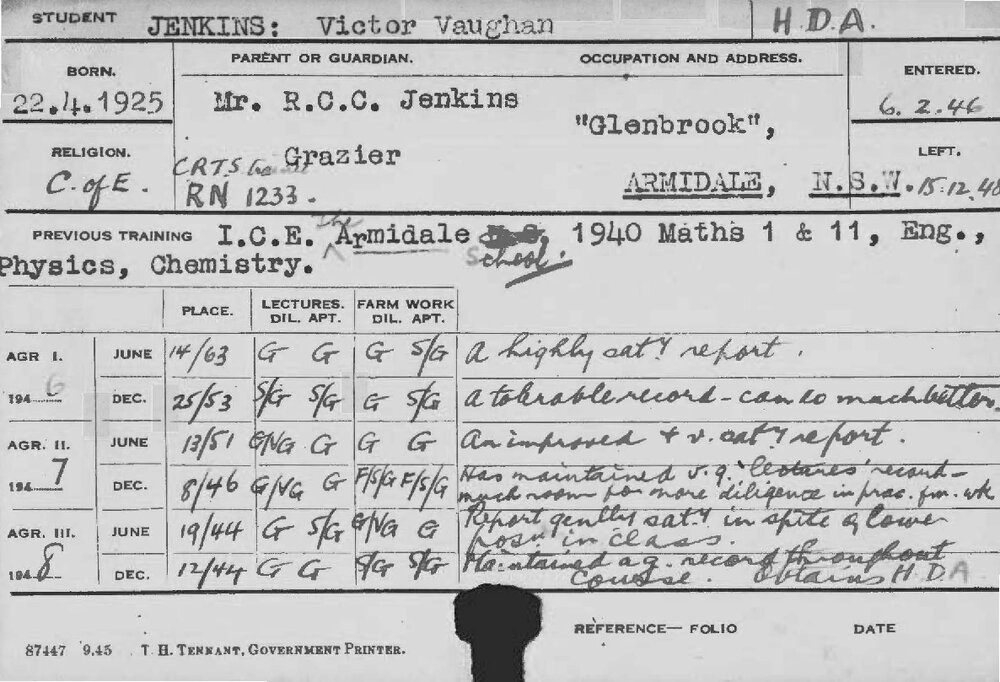 STUDENT JENKINS: Victor Vaughan H.D.A.
BORN. PARENT OR GUARDIAN. OCCUPATION AND ADDRESS. ENTERED.
22.4.1925 Mr. R.C.C. Jenkins "Glenbrook", 6.2.46
RELIGION. Grazier LEFT.
C. of E. CRTS ARMIDALE, N.S.W. 15.12.48
RN 1233.
PREVIOUS TRAINING I.C.E. the Armidale School. 1940 Maths 1 & 11, Eng.,
Physics, Chemistry.
PLACE. LECTURES. FARM WORK
DIL. APT. DIL. APT.
AGR I. JUNE 14/63 G G G S/G A highly saty report.
1946 DEC. 25/53 S/G S/G G S/G A tolerable record - can do much better.
AGR. II. JUNE 13/51 G/VG G G G An improved & v. saty report.
1947 DEC. 8/46 G/VG G F/S/G F/S/G Has maintained v.g. 'lectures' record -
much room for more diligence in prac. fm. wk
AGR. III. JUNE 19/44 G S/G G/VG G Report genlly saty in spite of lower
posn in class.
1948 DEC. 12/44 G G S/G S/G Maintained a g. record throughout
course. Obtains H.D.A
REFERENCE— FOLIO DATE
87447 9.45 T. H. TENNANT, GOVERNMENT PRINTER.